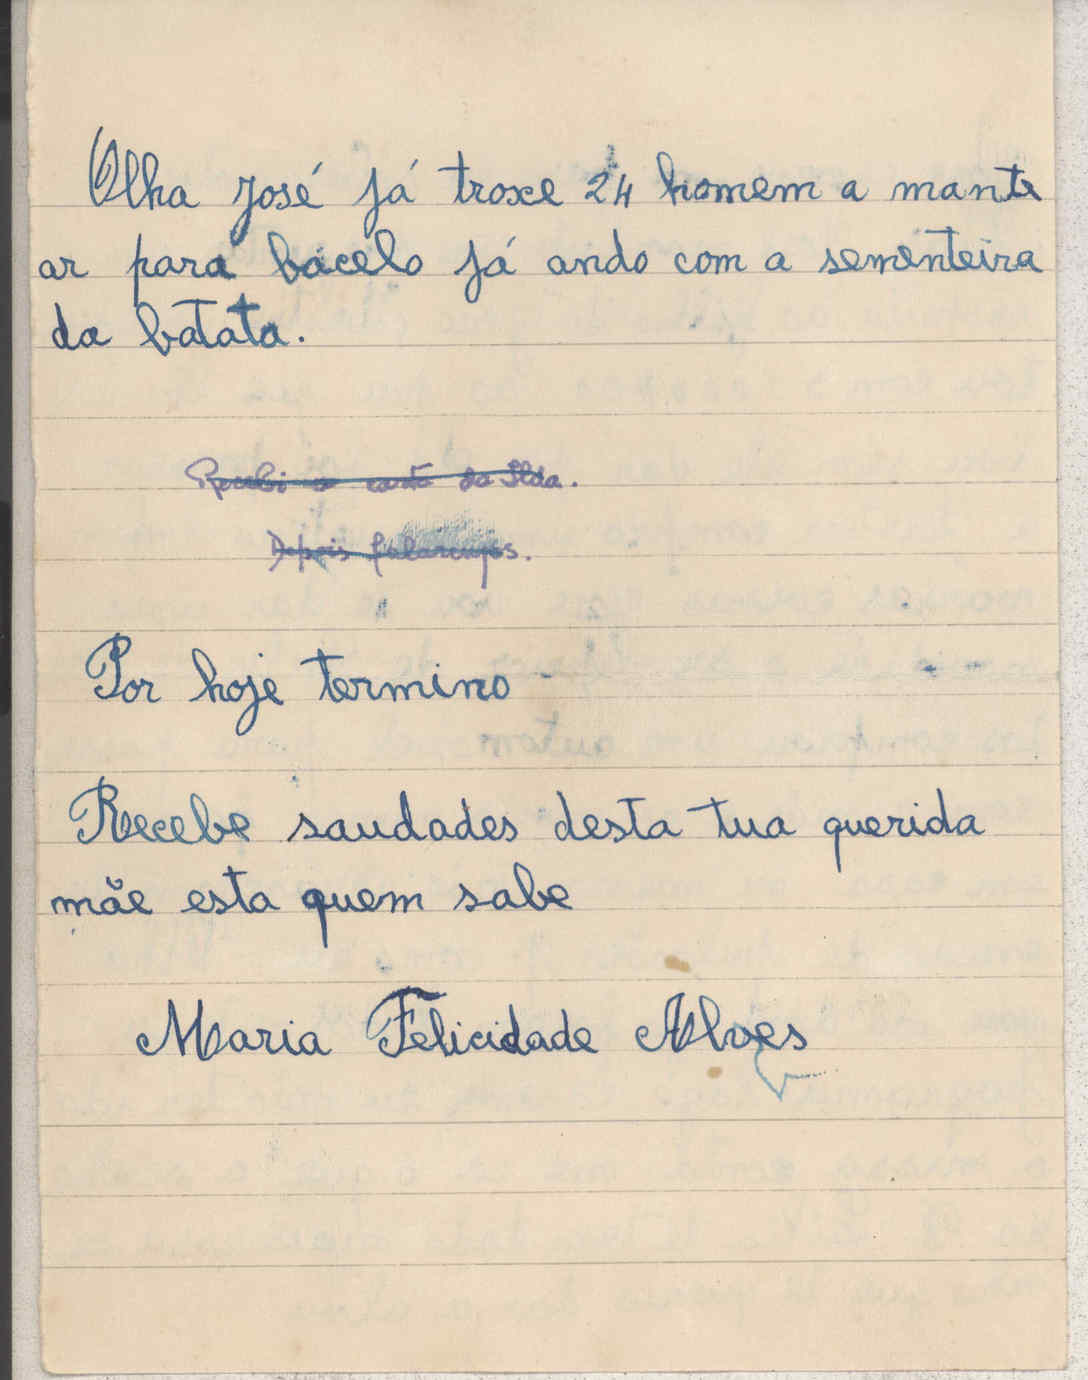 Olha José já troxe 24 homem a mante
ar para bacelo já ando com a sementeira
da batata.
Recebi a carta da Ilda.
Depois falaremos.
Por hoje termino
Recebe saudades desta tua querida
mãe esta quem sabe
Maria Felicidade Alves